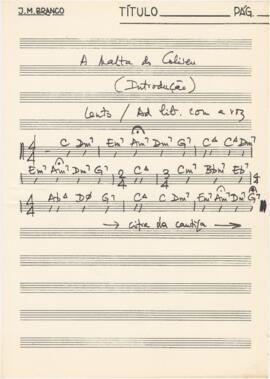 J.M. BRANCO TÍTULO PÁG.
A Malta do Coliseu
(Introdução)
Lento / Ad lib. com a voz
4/4 C Dm7 Em7 Am7 Dm7 G7 CΔ CΔ Dm7
Em7 Am7 Dm7 G7 2/4 CΔ 3/4 Cm7 Bbm7 Eb7
4/4 AbΔ DØ G7 CΔ C Dm7 Em7 Am7 Dm7 G7
→ cifra da cantiga →